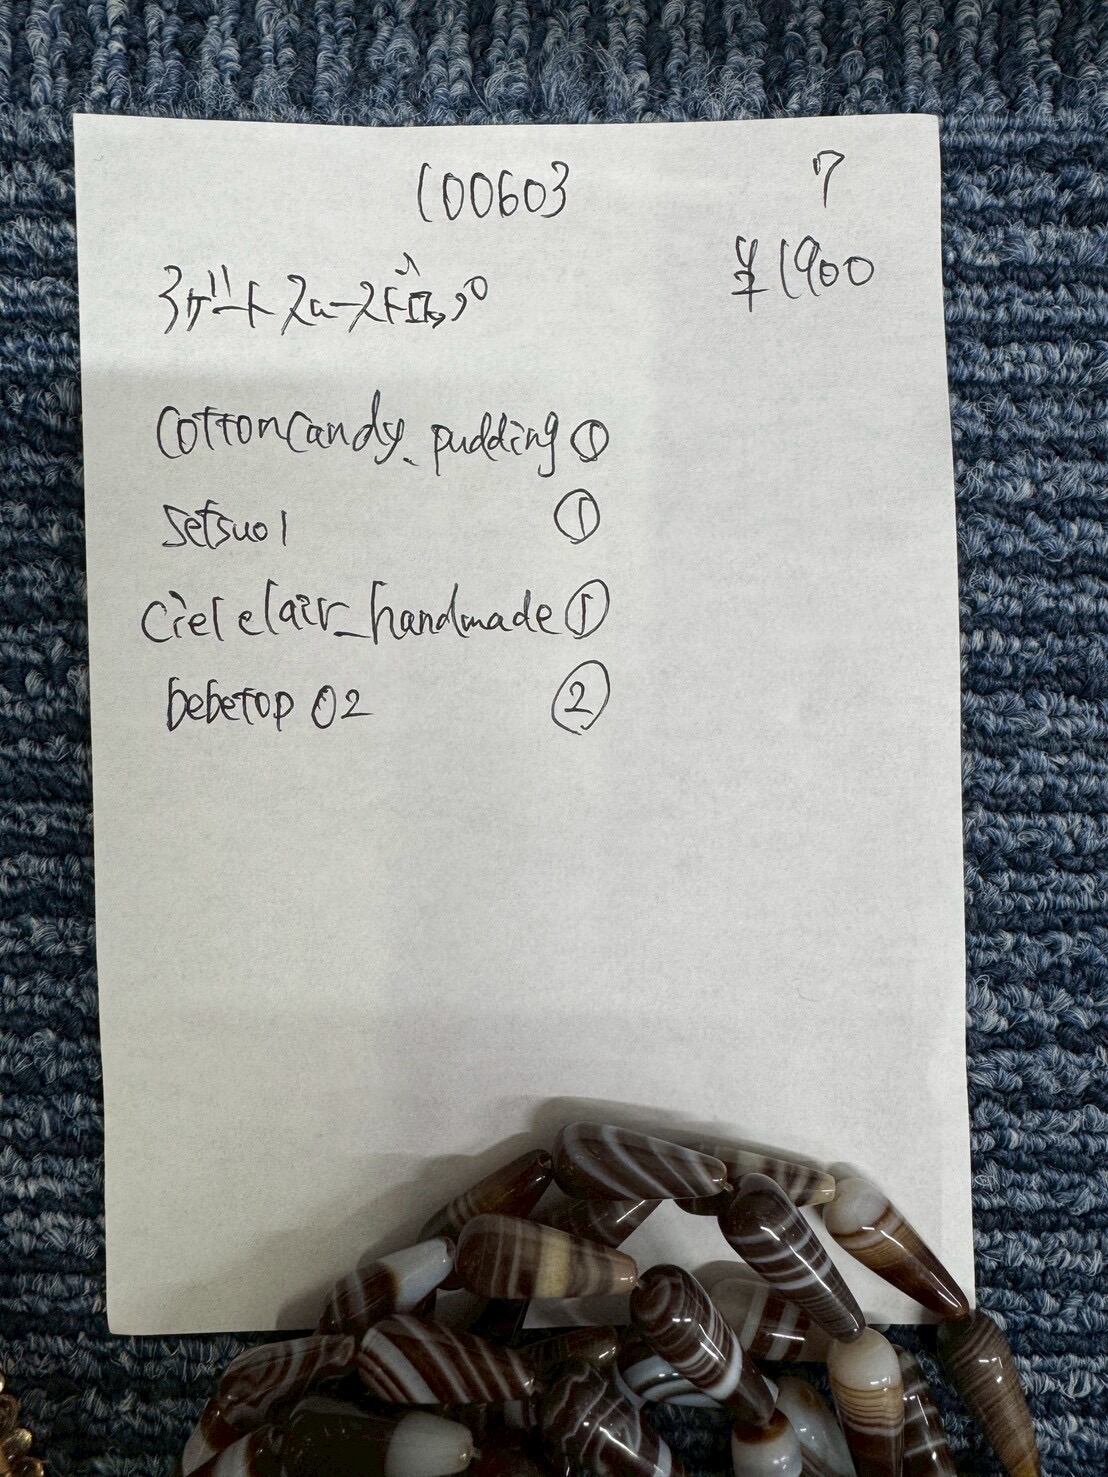 100603 7
¥1900
cottoncandy_pudding ①
setsuo1 ①
cielelair_handmade ①
bebetop02 ②